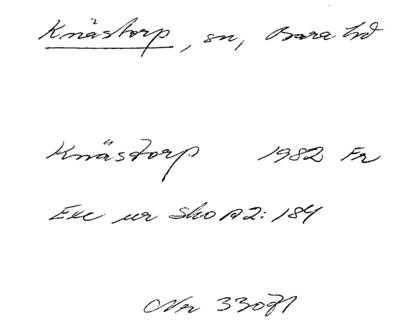 Knästorp, sn, Bara hd
Knästorp 1982 Fr
Exc ur Sko A2: 184
Nr 33071